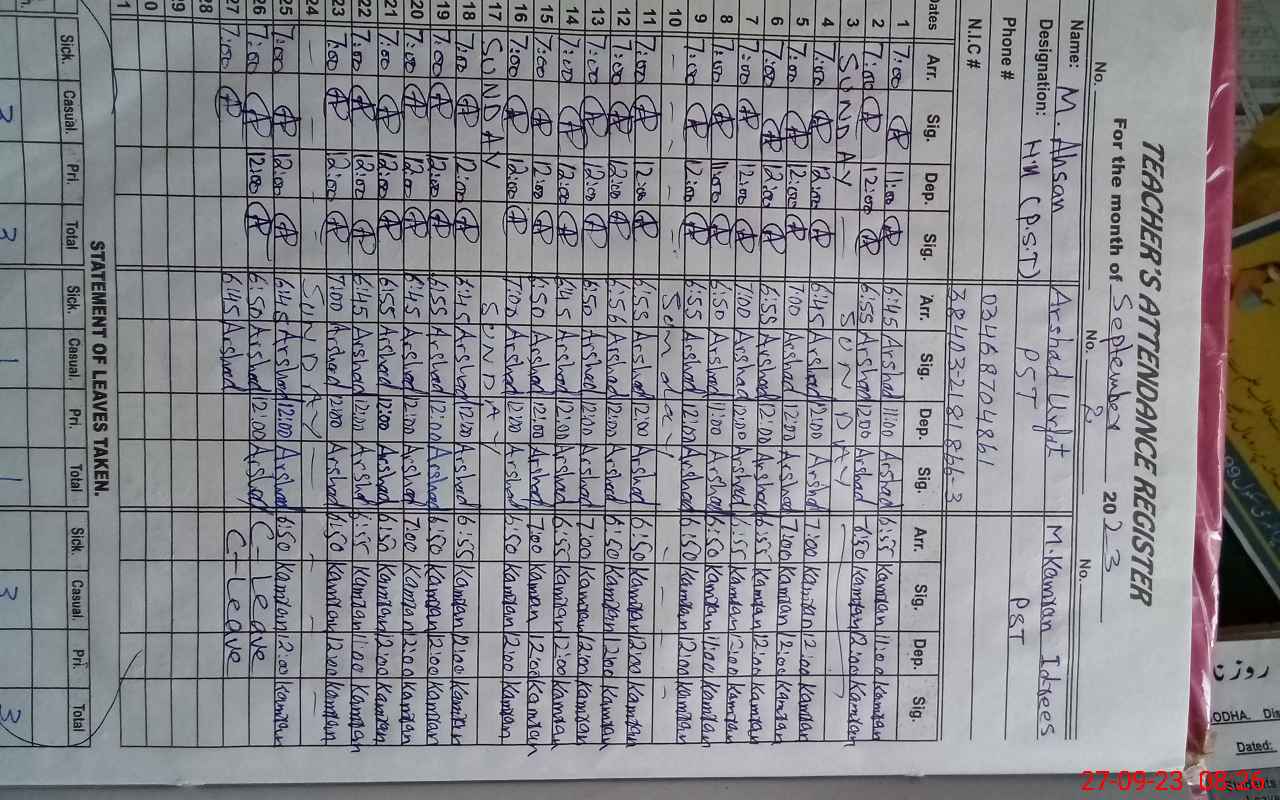 TEACHER'S ATTENDANCE REGISTER
For the month of September 2023
No. No. 2 No.
Name: M. Ahsan Arshad M. Kamran Idrees
Designation: HM (P.S.T) PST PST
Phone # 03468704861
N.I.C #
Dates Arr. Sig. Dep. Sig. Arr. Sig. Dep. Sig. Arr. Sig. Dep. Sig.
1 7:00 11:00 6:45 Arshad 11:00 Arshad 6:55 Kamran 11:00 Kamran
2 7:00 12:00 6:55 Arshad 12:00 Arshad 6:50 Kamran 12:00 Kamran
3 SUNDAY SUNDAY
4 7:00 12:00 6:45 Arshad 12:00 Arshad 7:00 Kamran 12:00 Kamran
5 7:00 12:00 7:00 Arshad 12:00 Arshad 7:00 Kamran 12:00 Kamran
6 7:00 12:00 6:55 Arshad 12:00 Arshad 6:55 Kamran 12:00 Kamran
7 7:00 12:00 7:00 Arshad 12:00 Arshad 6:55 Kamran 12:00 Kamran
8 7:00 11:00 6:50 Arshad 11:00 Arshad 6:50 Kamran 11:00 Kamran
9 7:00 12:00 6:55 Arshad 12:00 Arshad 6:50 Kamran 12:00 Kamran
10
11 7:00 12:00 6:55 Arshad 12:00 Arshad 6:50 Kamran 12:00 Kamran
12 7:00 12:00 6:56 Arshad 12:00 Arshad 6:50 Kamran 12:00 Kamran
13 7:00 12:00 6:50 Arshad 12:00 Arshad 7:00 Kamran 12:00 Kamran
14 7:00 12:00 6:45 Arshad 12:00 Arshad 6:55 Kamran 12:00 Kamran
15 7:00 12:00 6:50 Arshad 12:00 Arshad 7:00 Kamran 12:00 Kamran
16 7:00 12:00 7:00 Arshad 12:00 Arshad 6:50 Kamran 12:00 Kamran
17 SUNDAY SUNDAY
18 7:00 12:00 6:45 Arshad 12:00 Arshad 6:55 Kamran 12:00 Kamran
19 7:00 12:00 6:55 Arshad 12:00 Arshad 6:50 Kamran 12:00 Kamran
20 7:00 12:00 6:45 Arshad 12:00 Arshad 7:00 Kamran 12:00 Kamran
21 7:00 12:00 6:55 Arshad 12:00 Arshad 6:50 Kamran 12:00 Kamran
22 7:00 12:00 6:45 Arshad 12:00 Arshad 6:55 Kamran 11:00 Kamran
23 7:00 12:00 7:00 Arshad 12:00 Arshad 6:50 Kamran 12:00 Kamran
24 SUNDAY
25 7:00 12:00 6:45 Arshad 12:00 Arshad 6:50 Kamran 12:00 Kamran
26 7:00 12:00 6:50 Arshad 12:00 Arshad C-Leave
27 7:00 6:45 Arshad C-Leave
28
STATEMENT OF LEAVES TAKEN.
Sick. Casual. Pri. Total Sick. Casual. Pri. Total Sick. Casual. Pri. Total
3 1 1 3 3
ODHA Dis
Dated:
27-09-23 08:26